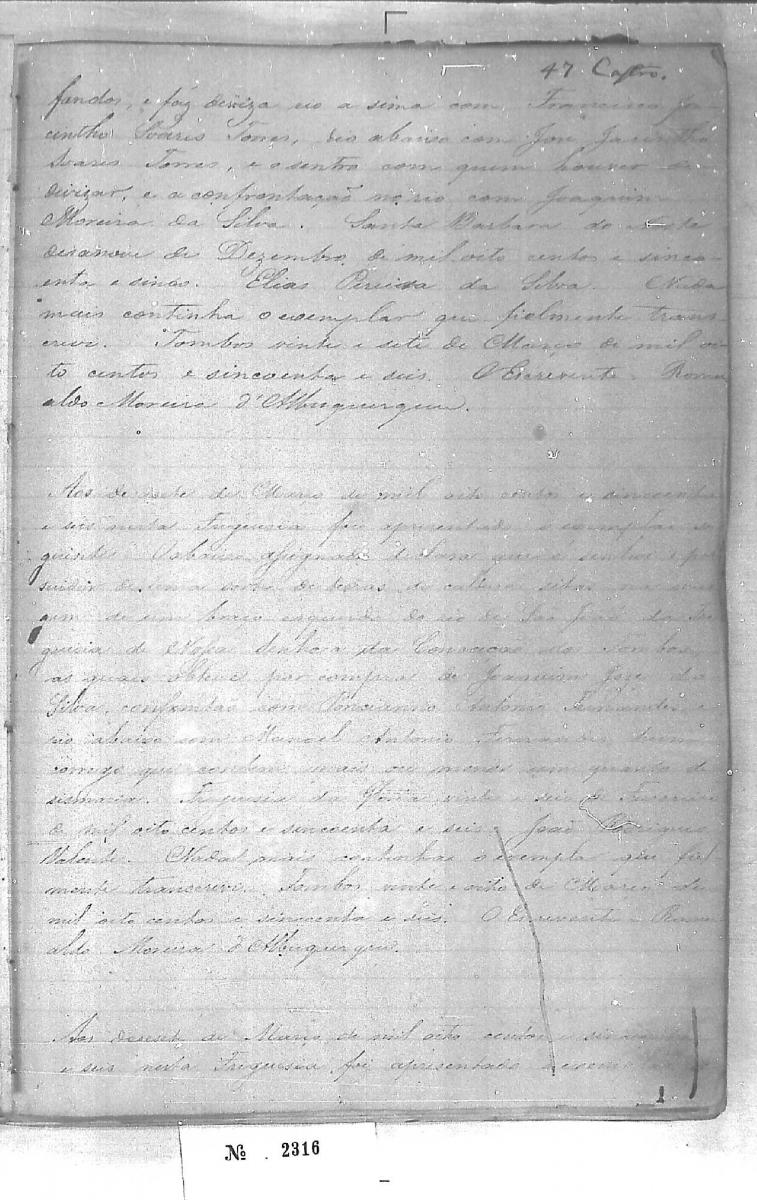 47 Castro.
fandos, e fáz diviza rio a sima com Francisco Ja-
cintho Soáris Torres, rio abaixo com José Jacintho
Soares Torres, e o sentro com quem houver de
divizar, e a confrontação no rio com Joaquim
Moreira da Silva. Santa Barbara do
desanove de Dezembro, de mil oito centos e sinco-
enta e sinco. Elias Pereira da Silva. Nada
mais continha o exemplar que fielmente trans-
crevi. Tombos vinte e sete de Março de mil oi-
to centos e sincoenta e seis. O Escrevente Romu
aldo Moreira d'Albuquerque.
Aos desesete de Março de mil oito centos e sincoenta
e seis nesta Freguesia foi apresentado o exemplar se-
guinte. O abaixo assignado declara que é senhor e pos-
suidor de uma sorte de terras de cultura sitas na mar
gem de um braço esquerdo do rio de São João da Fre
guesia de Nossa Senhora da Conceição dos Tombos,
as quais obteve por compra de Joaquim José da
Silva, confrontão com Antonio Fernandes, e
rio abaixo com Manoel Antonio Fernandes, hum
corrego que contem mais ou menos um quarto de
sismaria. Freguesia da vinte e seis de Fevereiro
de mil oito centos e sincoenta e seis. João Rodrigues
Valente. Nada mais continha o exemplar que fiel-
mente transcrevi. Tombos vinte e oito de Março de
mil oito centos e sincoenta e seis. O Escrevente Romu
aldo Moreira d'Albuquerque.
Aos desesete de Março de mil oito centos e sincoenta
e seis nesta Freguesia foi apresentado o exemplar
1
№ . 2316